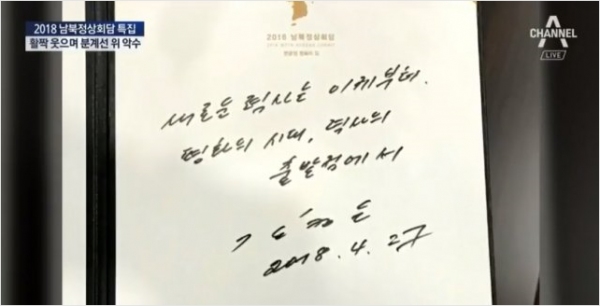 2018 남북정상회담 특집
활짝 웃으며 분계선 위 악수
CHANNEL A
LIVE
2018 남북정상회담
2018 INTER-KOREAN SUMMIT
새로운 력사는 이제부터.
평화의 시대, 력사의
출발점에서
김정은
2018. 4. 27